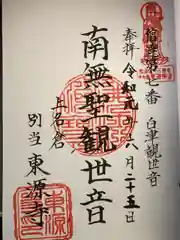 奉拝 令和元年六月二十五日
南無聖観世音
上名倉
別当 東源寺
白津観世音